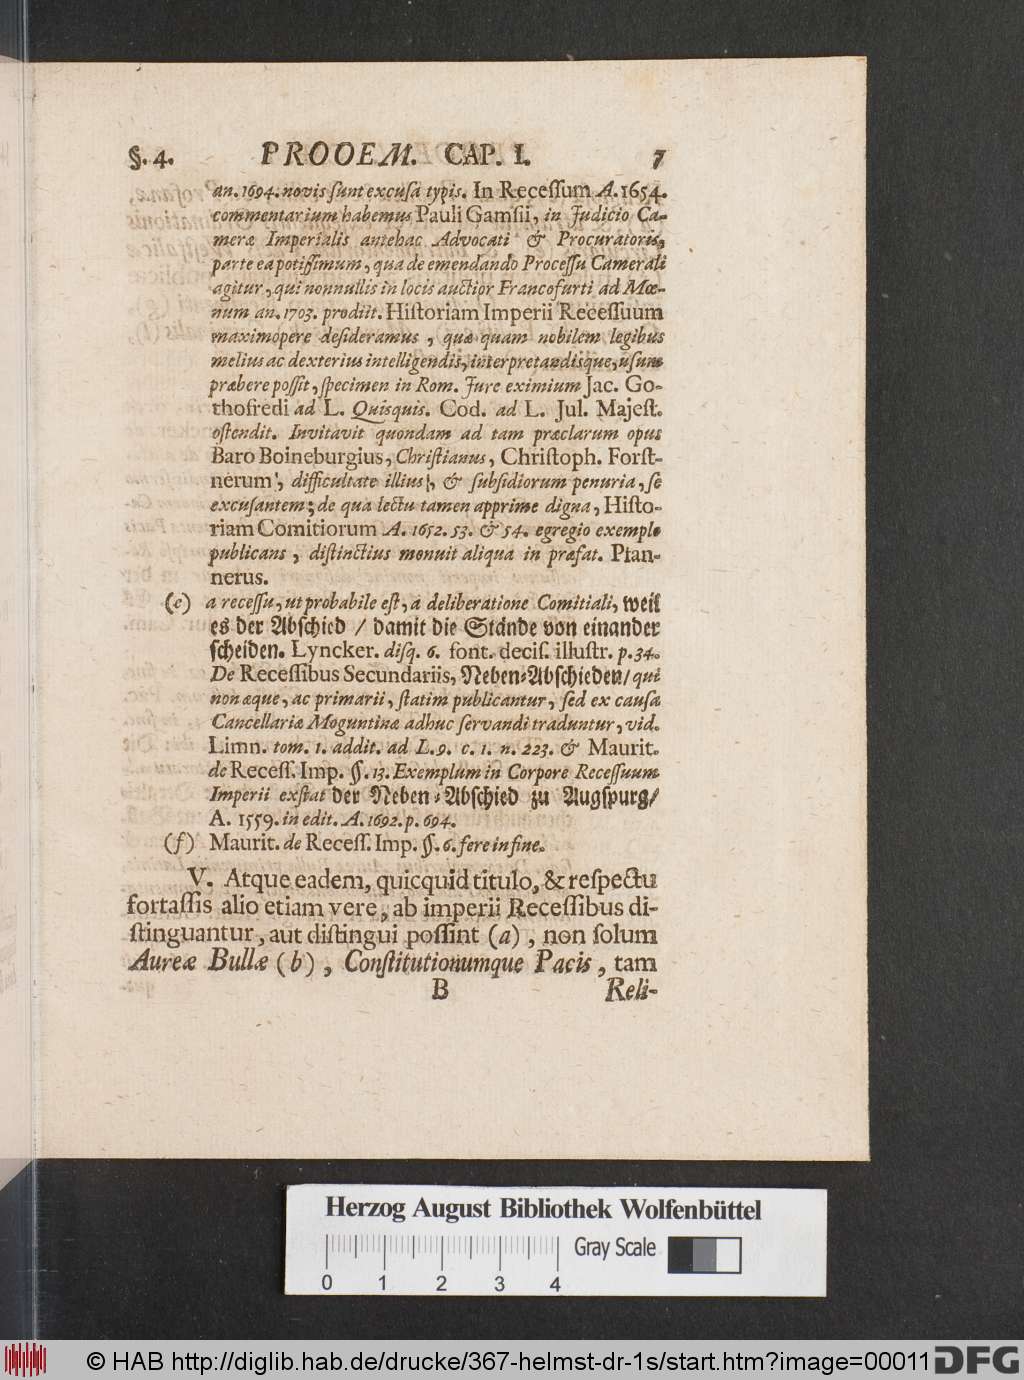 §. 4. PROOEM. CAP. I. 7
an. 1694. novis ſunt excuſa typis. In Receſſum A. 1654.
commentarium habemus Pauli Gamſii, in Judicio Ca-
meræ Imperialis antehac Advocati & Procuratoris,
parte ea potiſſimum, qua de emendando Proceſſu Camerali
agitur, qui nonnullis in locis auctior Francofurti ad Mœ-
num an. 1703. prodiit. Hiſtoriam Imperii Receſſuum
maximopere deſideramus, quæ quam nobilem legibus
melius ac dexterius intelligendis, interpretandisque, uſum
præbere poſſit, ſpecimen in Rom. Jure eximium Jac. Go-
thofredi ad L. Quisquis. Cod. ad L. Jul. Majeſt.
oſtendit. Invitavit quondam ad tam præclarum opus
Baro Boineburgius, Chriſtianus, Chriſtoph. Forſt-
nerum, difficultate illius, & ſubſidiorum penuria, ſe
excuſantem; de qua lectu tamen apprime digna, Hiſto-
riam Comitiorum A. 1652. 53. & 54. egregio exemplo
publicans, diſtinctius monuit aliqua in præfat. Pfan-
nerus.
(e) a receſſu, ut probabile eſt, a deliberatione Comitiali, weil
es der Abſchied / damit die Stände von einander
ſcheiden. Lyncker. diſq. 6. font. deciſ. illuſtr. p. 34.
De Receſſibus Secundariis, Neben-Abſchieden/ qui
non æque, ac primarii, ſtatim publicantur, ſed ex cauſa
Cancellariæ Moguntinæ adhuc ſervandi traduntur, vid.
Limn. tom. 1. addit. ad L. 9. c. 1. n. 223. & Maurit.
de Receſſ. Imp. §. 13. Exemplum in Corpore Receſſuum
Imperii exſtat der Neben-Abſchied zu Augſpurg/
A. 1559. in edit. A. 1692. p. 694.
(f) Maurit. de Receſſ. Imp. §. 6. fere in fine.
V. Atque eadem, quicquid titulo, & reſpectu
fortaſſis alio etiam vere, ab imperii Receſſibus di-
ſtinguantur, aut diſtingui poſſint (a), non ſolum
Aureæ Bullæ (b), Conſtitutionumque Pacis, tam
B Reli-
Herzog August Bibliothek Wolfenbüttel
Gray Scale
0 1 2 3 4
© HAB http://diglib.hab.de/drucke/367-helmst-dr-1s/start.htm?image=00011 DFG